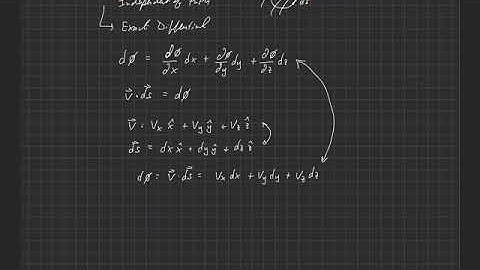 Independent of Path
ds
↳ Exact Differential
dø = ∂ø/∂x dx + ∂ø/∂y dy + ∂ø/∂z dz
V⃗ · ds⃗ = dø
V⃗ = Vx x̂ + Vy ŷ + Vz ẑ
ds⃗ = dx x̂ + dy ŷ + dz ẑ
dø = V⃗ · ds⃗ = Vx dx + Vy dy + Vz dz